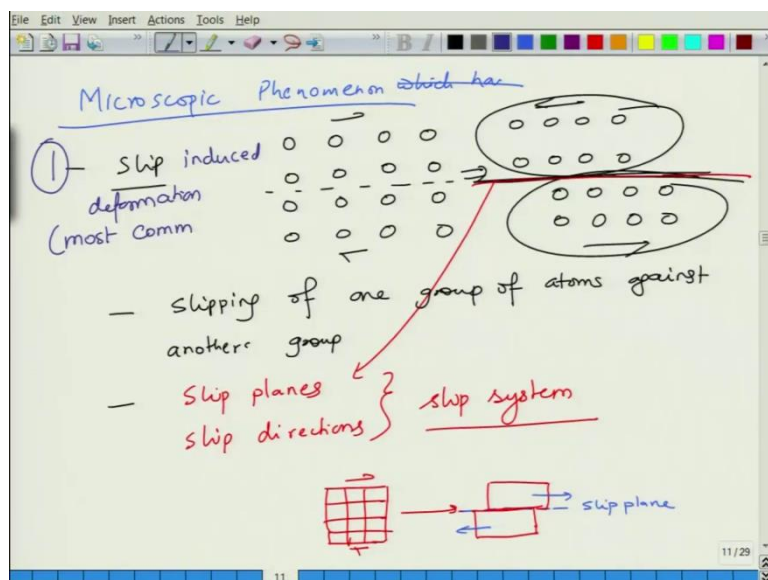 File Edit View Insert Actions Tools Help
B I
Microscopic Phenomenon which has
1 - Slip induced
deformation
(most comm
- Slipping of one group of atoms against
another group
- Slip planes
slip directions } slip system
slip plane
11/29
11